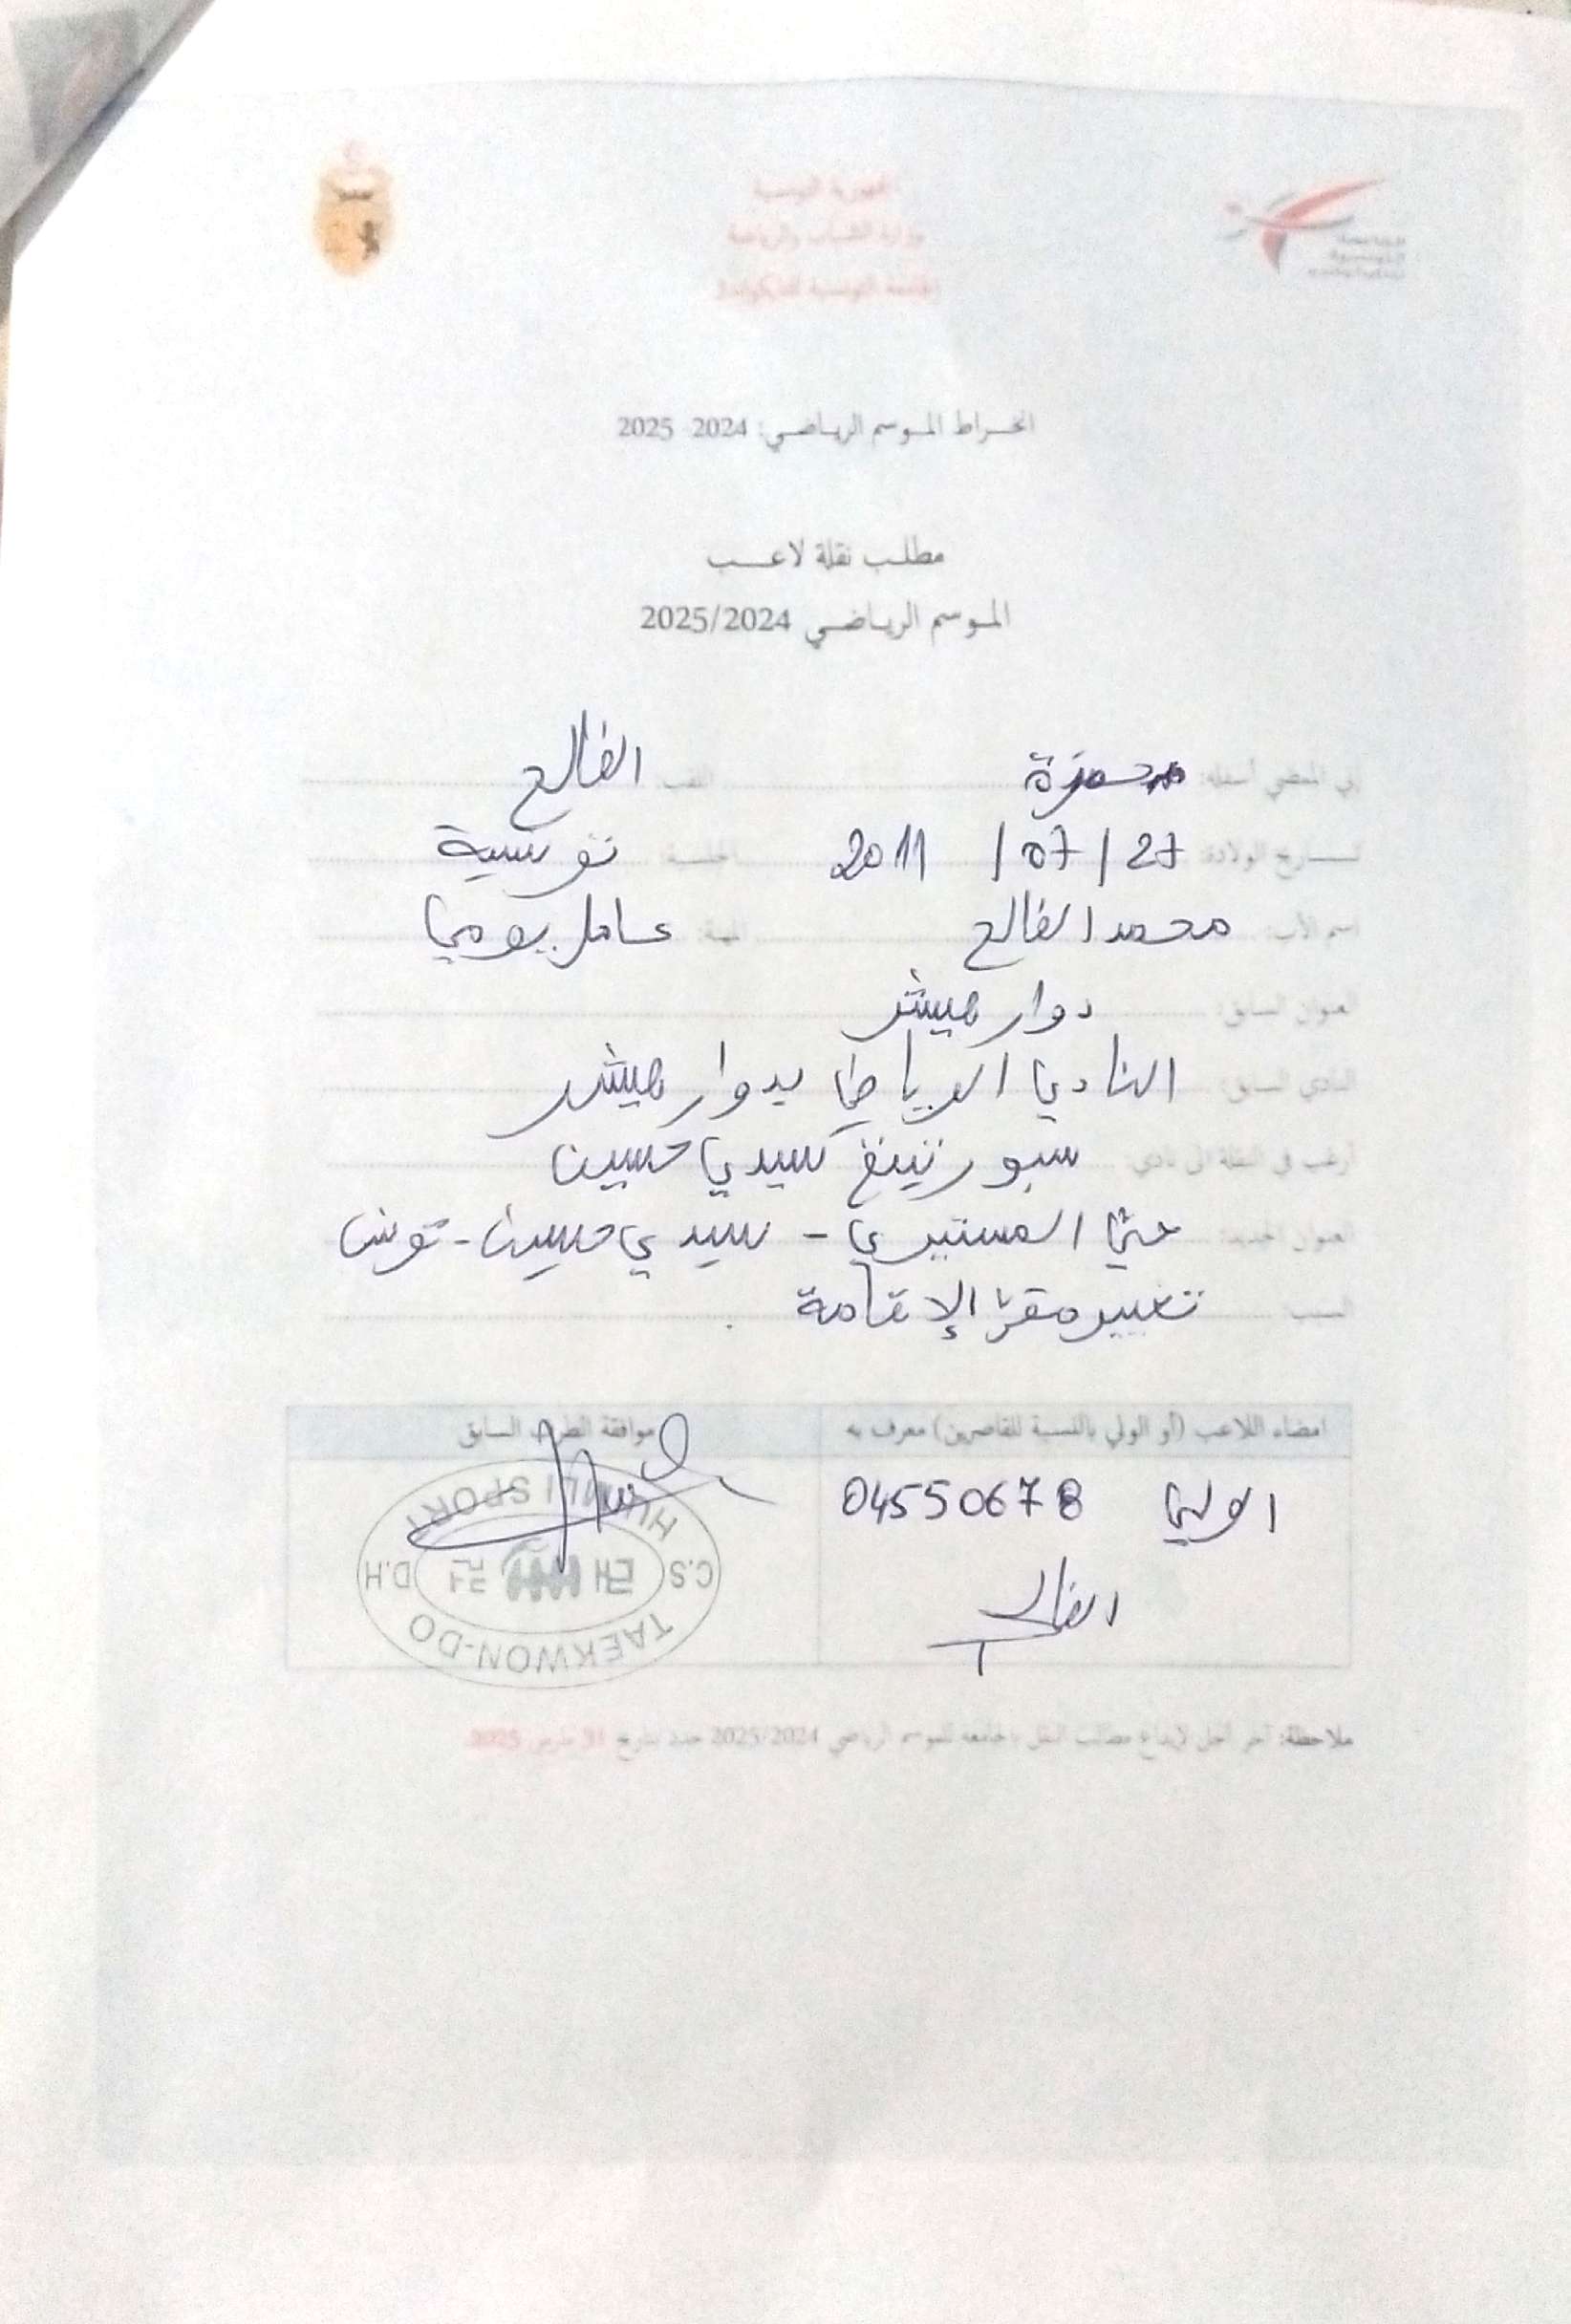 الجمهورية التونسية
وزارة الشباب والرياضة
الجامعة التونسية للتايكواندو
انخراط الموسم الرياضي: 2024 2025
مطلب نقلة لاعب
الموسم الرياضي 2025/2024
إني الممضي أسفله: حمزة اللقب الفالح
تاريخ الولادة: 27 / 07 / 2011 الجنسية: تونسية
اسم الأب: محمد الفالح المهنة: عامل يومي
العنوان السابق: دوار هيشر
النادي السابق: النادي الرياضي بدوار هيشر
أرغب في النقلة الى نادي: سبورتينغ سيدي حسين
العنوان الجديد: حيّ المستيري - سيدي حسين - تونس
السبب تغيير مقرّ الإقامة .
امضاء اللاعب (أو الولي بالنسبة للقاصرين) معرف به موافقة الطرف السابق
الولي 04550678
الفالح
C.S D.H
TAEKWON-DO
ملاحظة: آخر أجل لإيداع مطالب النقل بالجامعة للموسم الرياضي 2025/2024 حدد بتاريخ 31 مارس 2025.